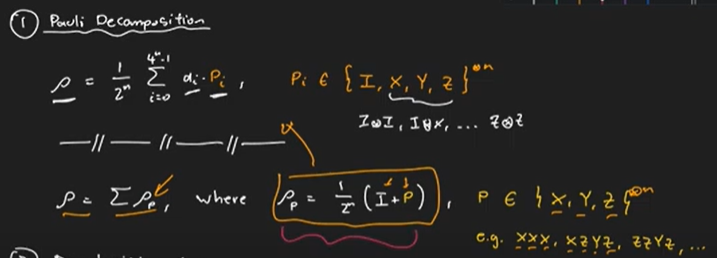 ① Pauli Decomposition
ρ = 1/2ⁿ Σ_{i=0}^{4ⁿ-1} αᵢ · Pᵢ , Pᵢ ∈ { I, X, Y, Z }^{⊗n}
I⊗I, I⊗X, ... Z⊗Z
— // — // — // —
α
ρ = Σ ρ_P , where ρ_P = 1/2ⁿ (I + P) , P ∈ { X, Y, Z }^{⊗n}
e.g. XXX, XZYZ, ZZYZ, ...